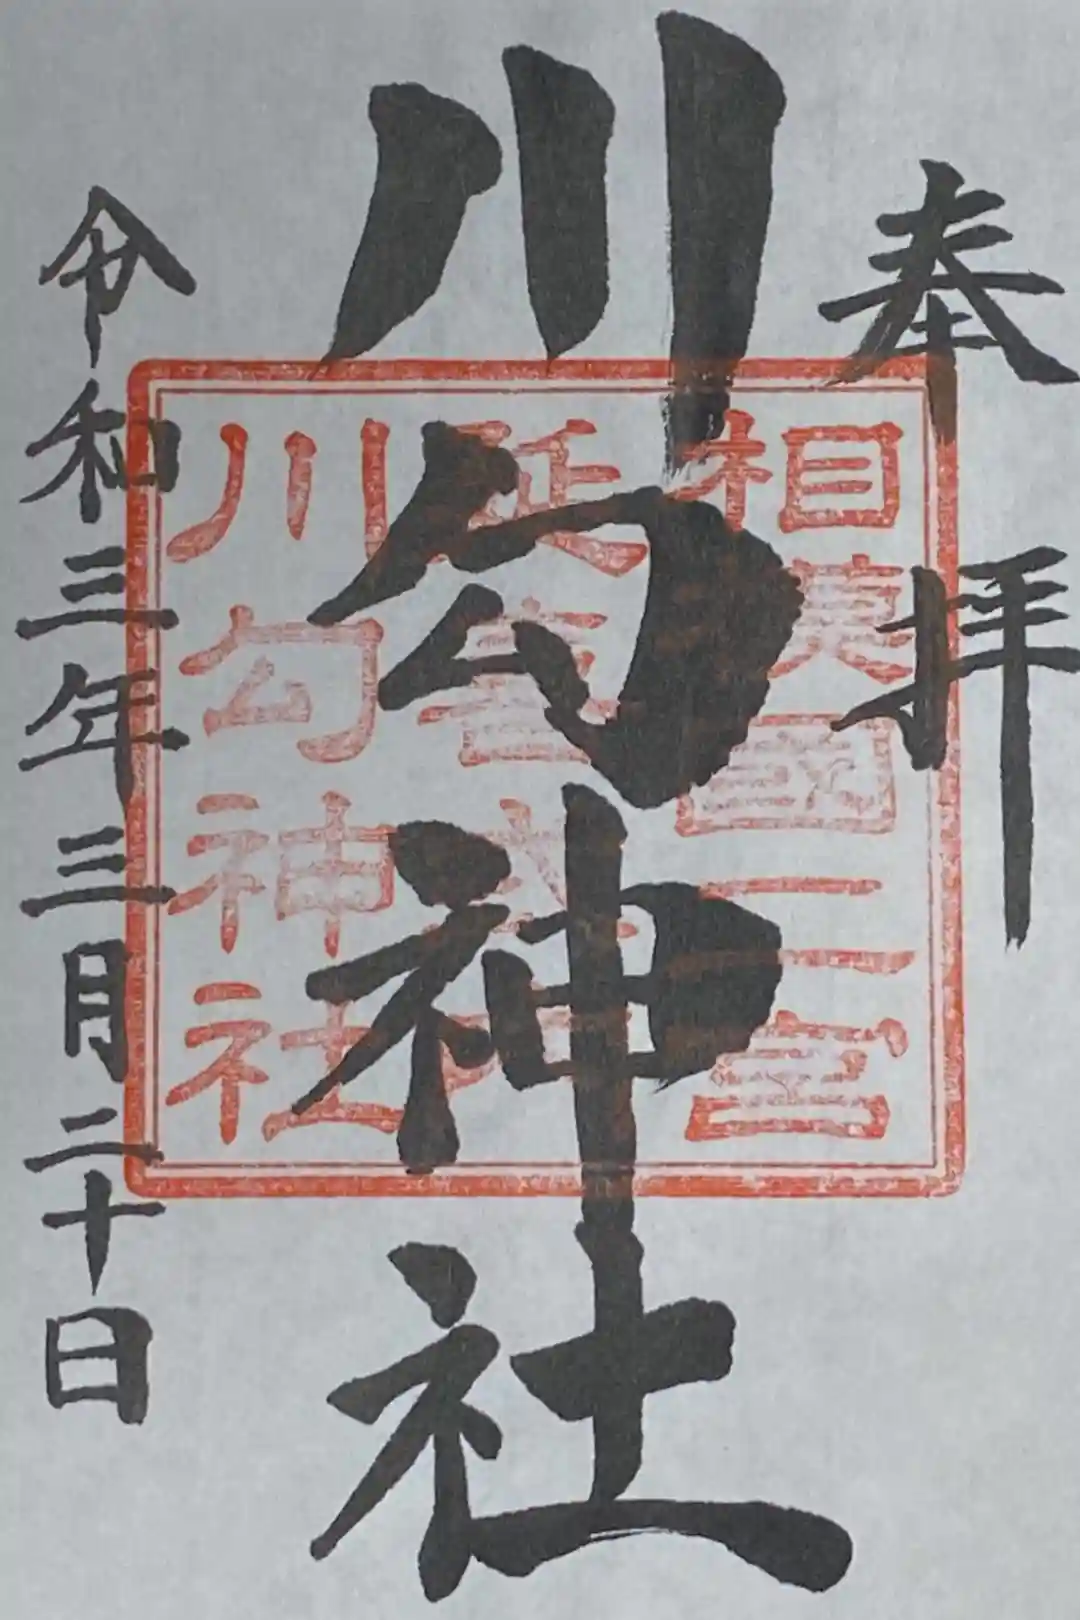 奉拝
川勾神社
令和三年三月二十日
相模國二之宮
延喜式内社
川勾神社